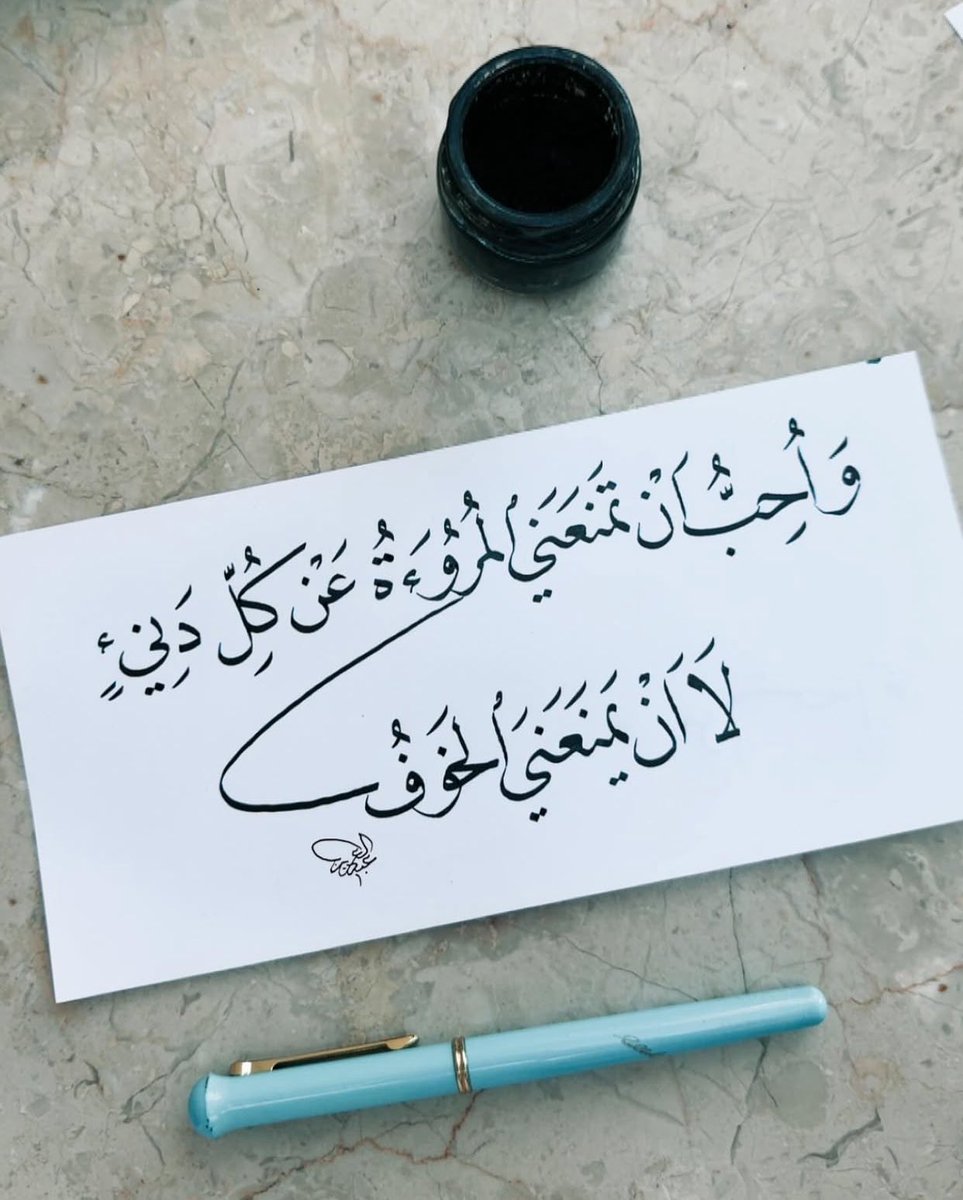 وَاُحِبُّ اَنْ تَمنَعَنيَ اُلمُرُوُءَةُ عَنْ كُلِّ دَنِيءٍ
لَا اَنْ يَمنَعَنيَ اُلخَوَفُ